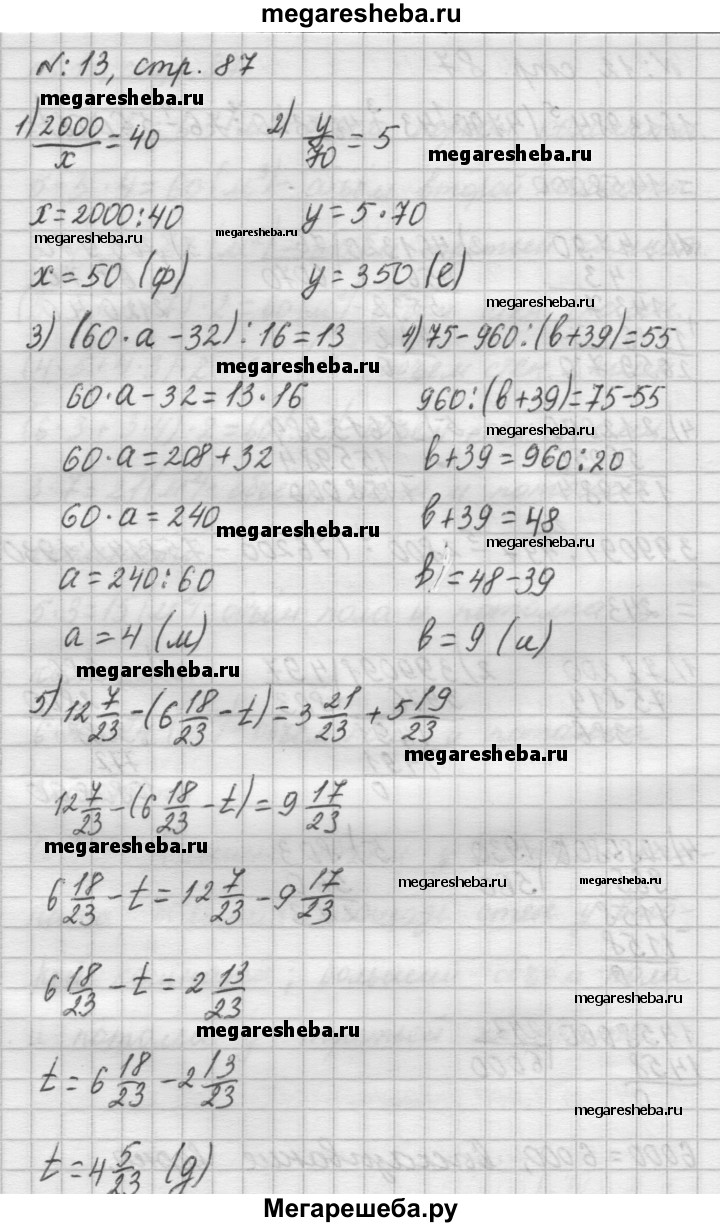 megaresheba.ru
№: 13, стр. 87
megaresheba.ru
1) 2000/x = 40 2) y/70 = 5
megaresheba.ru
x = 2000 : 40 y = 5 · 70
megaresheba.ru megaresheba.ru
x = 50 (ф) y = 350 (е)
megaresheba.ru
3) (60 · a - 32) : 16 = 13 4) 75 - 960 : (в + 39) = 55
megaresheba.ru
60 · a - 32 = 13 · 16 960 : (в + 39) = 75 - 55
megaresheba.ru
60 · a = 208 + 32 в + 39 = 960 : 20
60 · a = 240 в + 39 = 48
megaresheba.ru megaresheba.ru
a = 240 : 60 в = 48 - 39
a = 4 (м) в = 9 (и)
megaresheba.ru
5) 12 7/23 - (6 18/23 - t) = 3 21/23 + 5 19/23
megaresheba.ru
12 7/23 - (6 18/23 - t) = 9 17/23
megaresheba.ru
6 18/23 - t = 12 7/23 - 9 17/23
megaresheba.ru megaresheba.ru
6 18/23 - t = 2 13/23
megaresheba.ru
megaresheba.ru
t = 6 18/23 - 2 13/23
megaresheba.ru
t = 4 5/23 (д)
Мегарешеба.ру